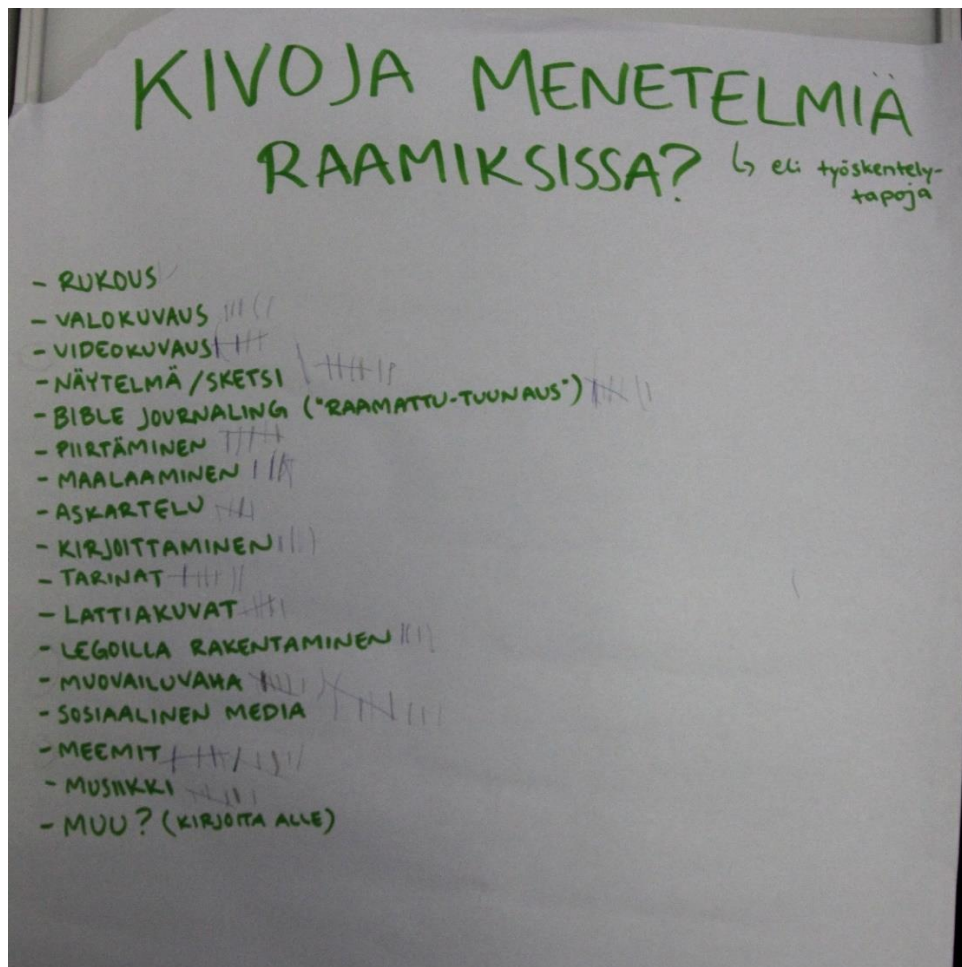 KIVOJA MENETELMIÄ
RAAMIKSISSA? ↳ eli työskentely-
tapoja
- RUKOUS
- VALOKUVAUS
- VIDEOKUVAUS
- NÄYTELMÄ / SKETSI
- BIBLE JOURNALING ("RAAMATTU-TUUNAUS")
- PIIRTÄMINEN
- MAALAAMINEN
- ASKARTELU
- KIRJOITTAMINEN
- TARINAT
- LATTIAKUVAT
- LEGOILLA RAKENTAMINEN
- MUOVAILUVAHA
- SOSIAALINEN MEDIA
- MEEMIT
- MUSIIKKI
- MUU? (KIRJOITA ALLE)